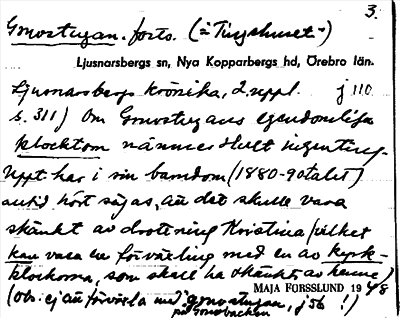 3.
Gmostugan. forts. (= "Tingshuset")
Ljusnarsbergs sn, Nya Kopparbergs hd, Örebro län.
Ljusnarsbergs krönika, 2. uppl. j 110
s. 311) Om Gmostugans egendomliga
klocktorn nämner Hult ingenting.
Uppt har i sin barndom (1880-90talet)
alltid hört sägas, att det skulle vara
skänkt av drottning Kristina (vilket
kan vara en förväxling med en av kyrk-
klockorna, som skall ha skänkts av henne)
MAJA FORSSLUND 1948
(Obs: ej att förväxla med "gmostugan, j 5b !)
på Gmobacken